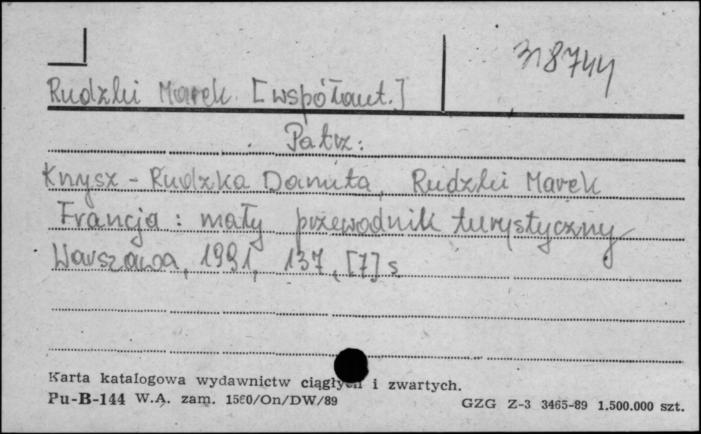 318744
Rudzki Marek [współaut.]
Patrz:
Knysz-Rudzka Danuta, Rudzki Marek
Francja: mały przewodnik turystyczny
Warszawa, 1991, 137, [7] s
Karta katalogowa wydawnictw ciągłych i zwartych.
Pu-B-144 W.A. zam. 1560/On/DW/89 GZG Z-3 3465-89 1.500.000 szt.